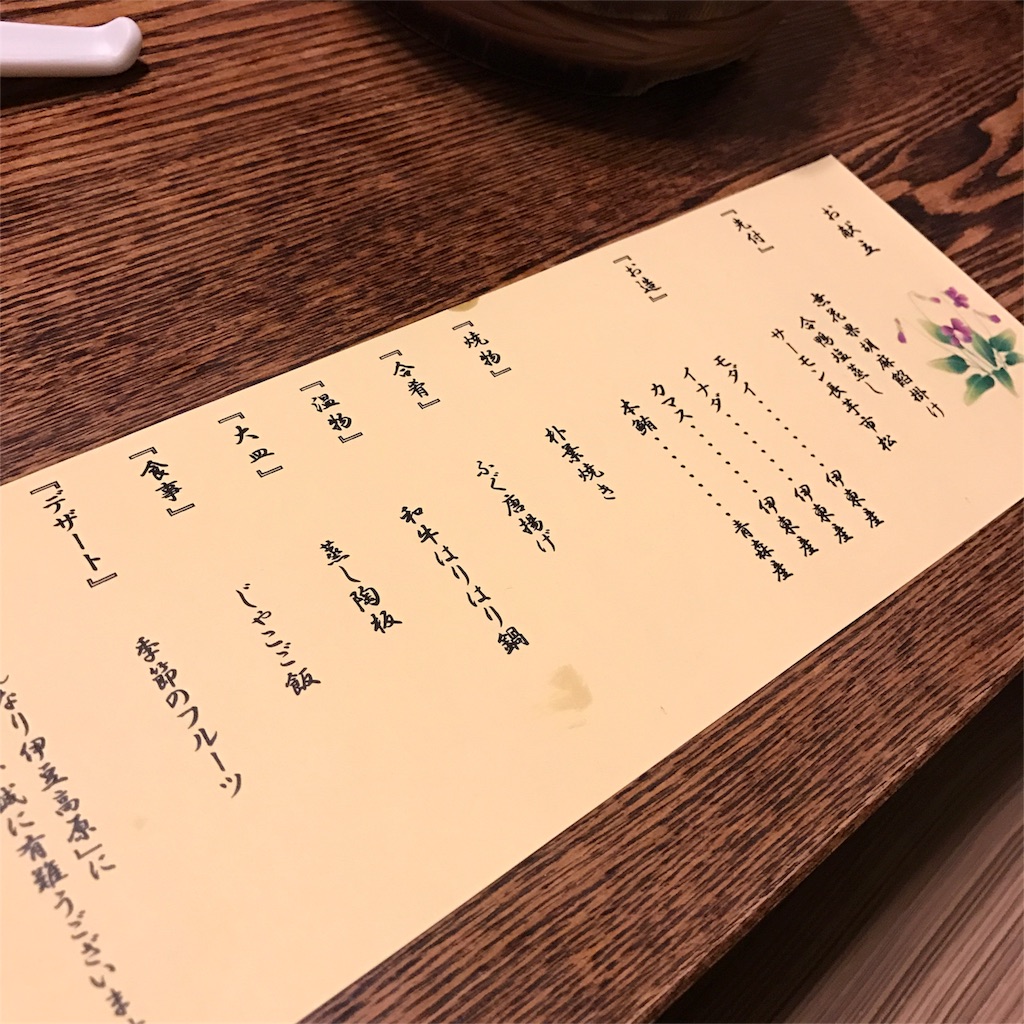 お献立
『先付』
無花果胡麻餡掛け
合鴨塩蒸し
サーモン長芋市松
『お造』
モダイ・・・・・・伊東産
イナダ・・・・・・伊東産
カマス・・・・・・伊東産
本鮪・・・・・・青森産
『焼物』
朴葉焼き
『合肴』
ふぐ唐揚げ
『温物』
和牛はりはり鍋
『大皿』
蒸し陶板
『食事』
じゃこご飯
『デザート』
季節のフルーツ
なり伊豆高原」に
誠に有難うございま